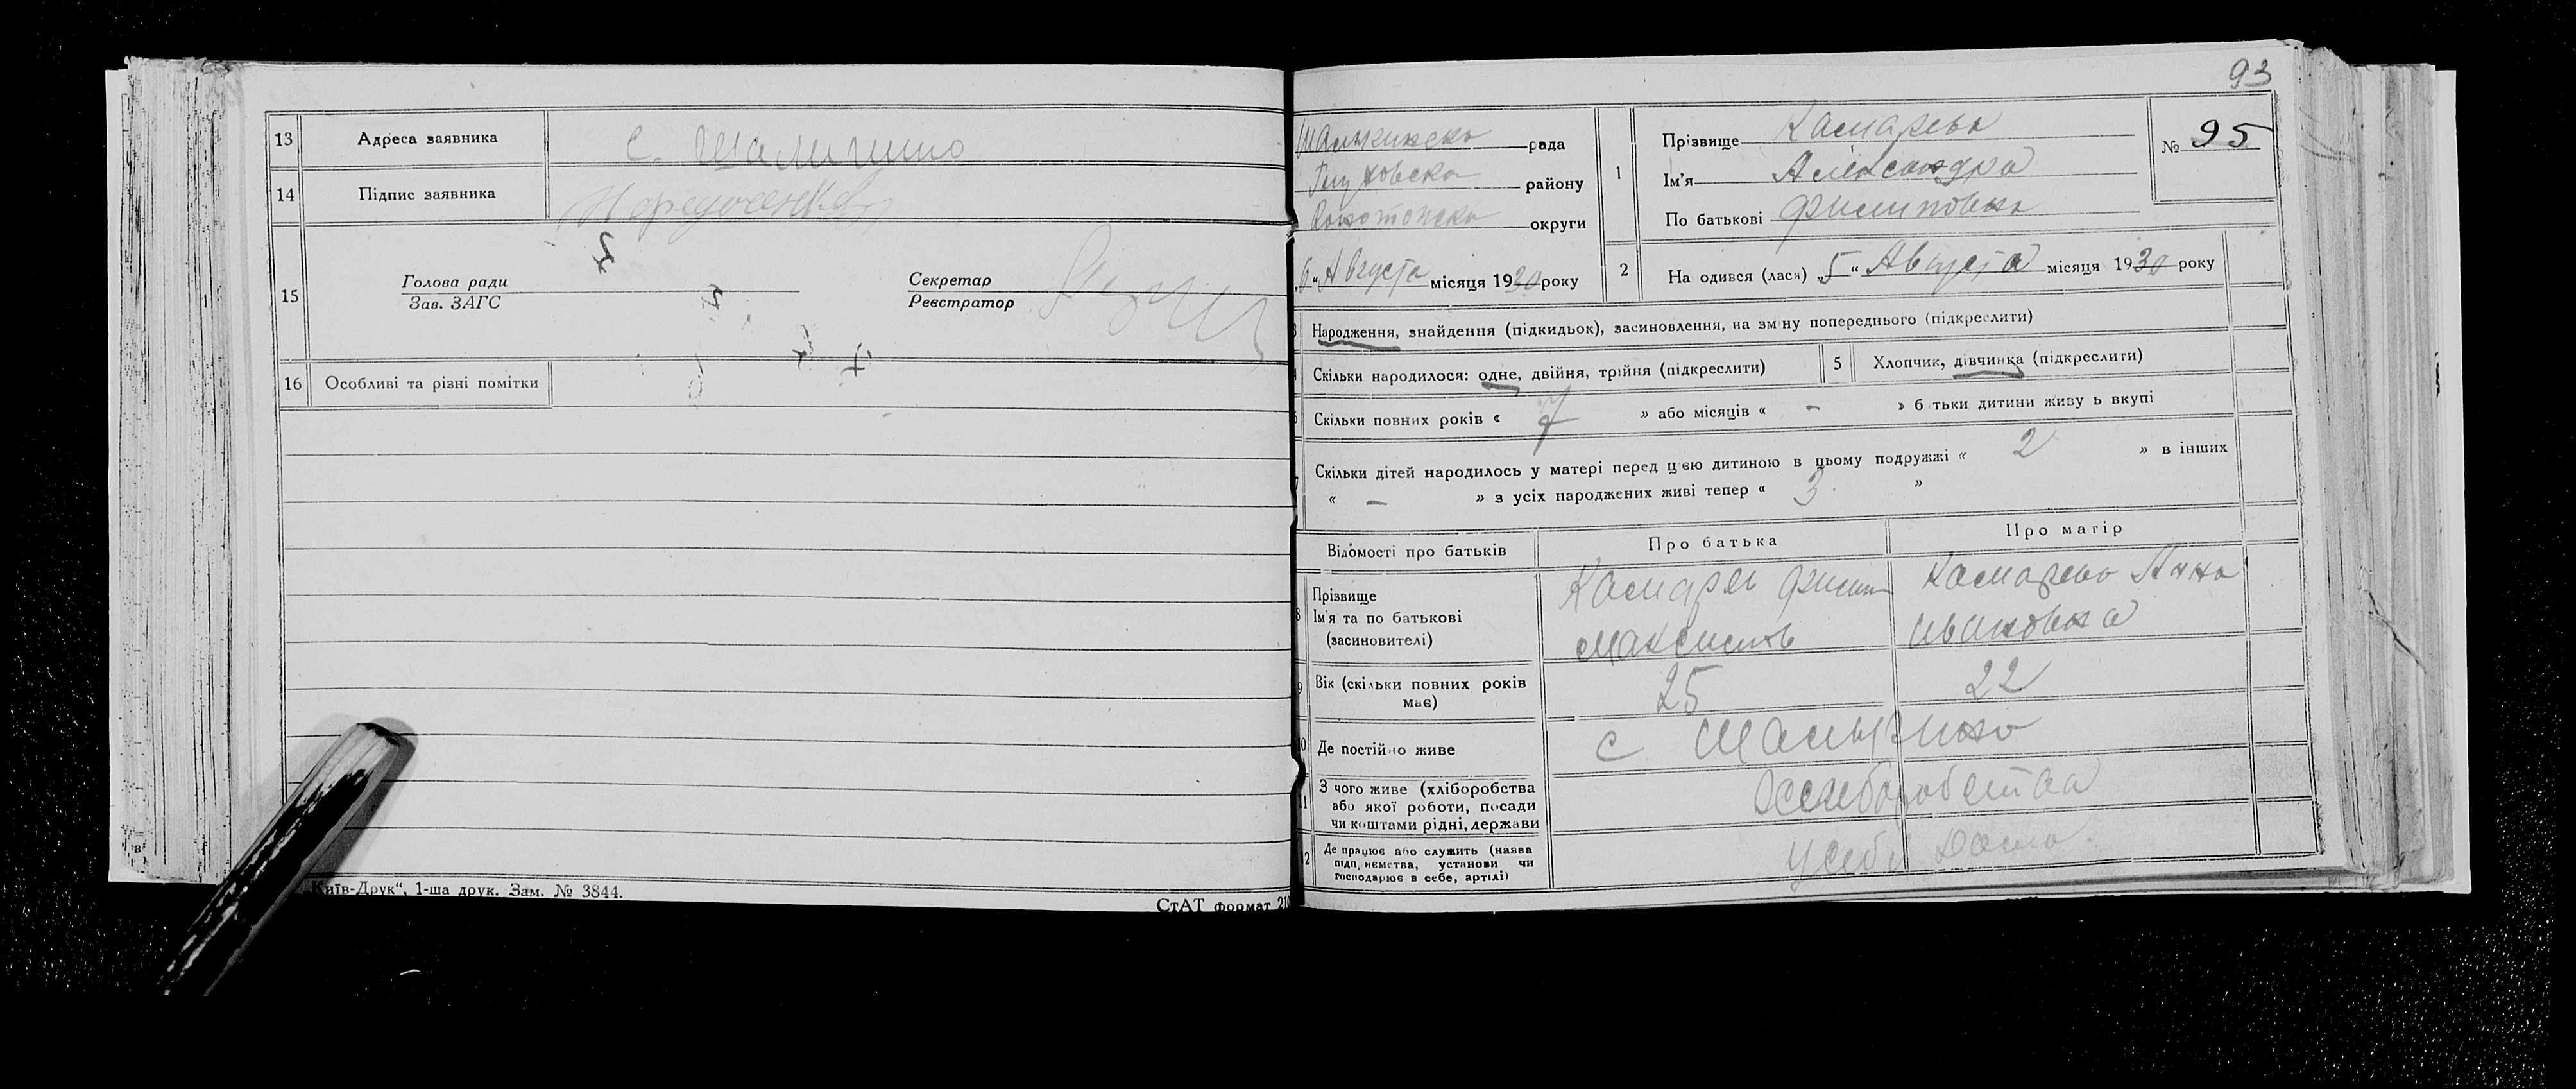 13 Адреса заявника с. Шалигино
14 Підпис заявника
15 Голова ради Секретар
Зав. ЗАГС Реєстратор
16 Особливі та різні помітки
"Київ-Друк", 1-ша друк. Зам. № 3844.
СтАТ формат 210
93
рада
Глуховска району
Конотопска округи
6 " Августа місяця 1930 року
1 Прізвище Комарева
Ім'я Александра
По батькові Филиповна
№ 95
2 На одився (лася) „5" Августа місяця 1930 року
3 Народження, знайдення (підкидьок), засиновлення, на зміну попереднього (підкреслити)
4 Скільки народилося: одне, двійня, трійня (підкреслити) 5 Хлопчик, дівчинка (підкреслити)
6 Скільки повних років « 7 » або місяців « - » б тьки дитини живу ь вкупі
7 Скільки дітей народилось у матері перед цією дитиною в цьому подружжі « 2 » в інших
« - » з усіх народжених живі тепер « 3 »
Відомості про батьків Про батька Про матір
8 Прізвище
Ім'я та по батькові
(засиновителі)
Комарев Филип
Максимов
Комарева Анна
Ивановна
9 Вік (скільки повних років
має) 25 22
10 Де постійно живе с Шалыгино
11 З чого живе (хліборобства
або якої роботи, посади
чи коштами рідні, держави
12 Де працює або служить (назва
підп, иємства, установи чи
господарює в себе, артілі)